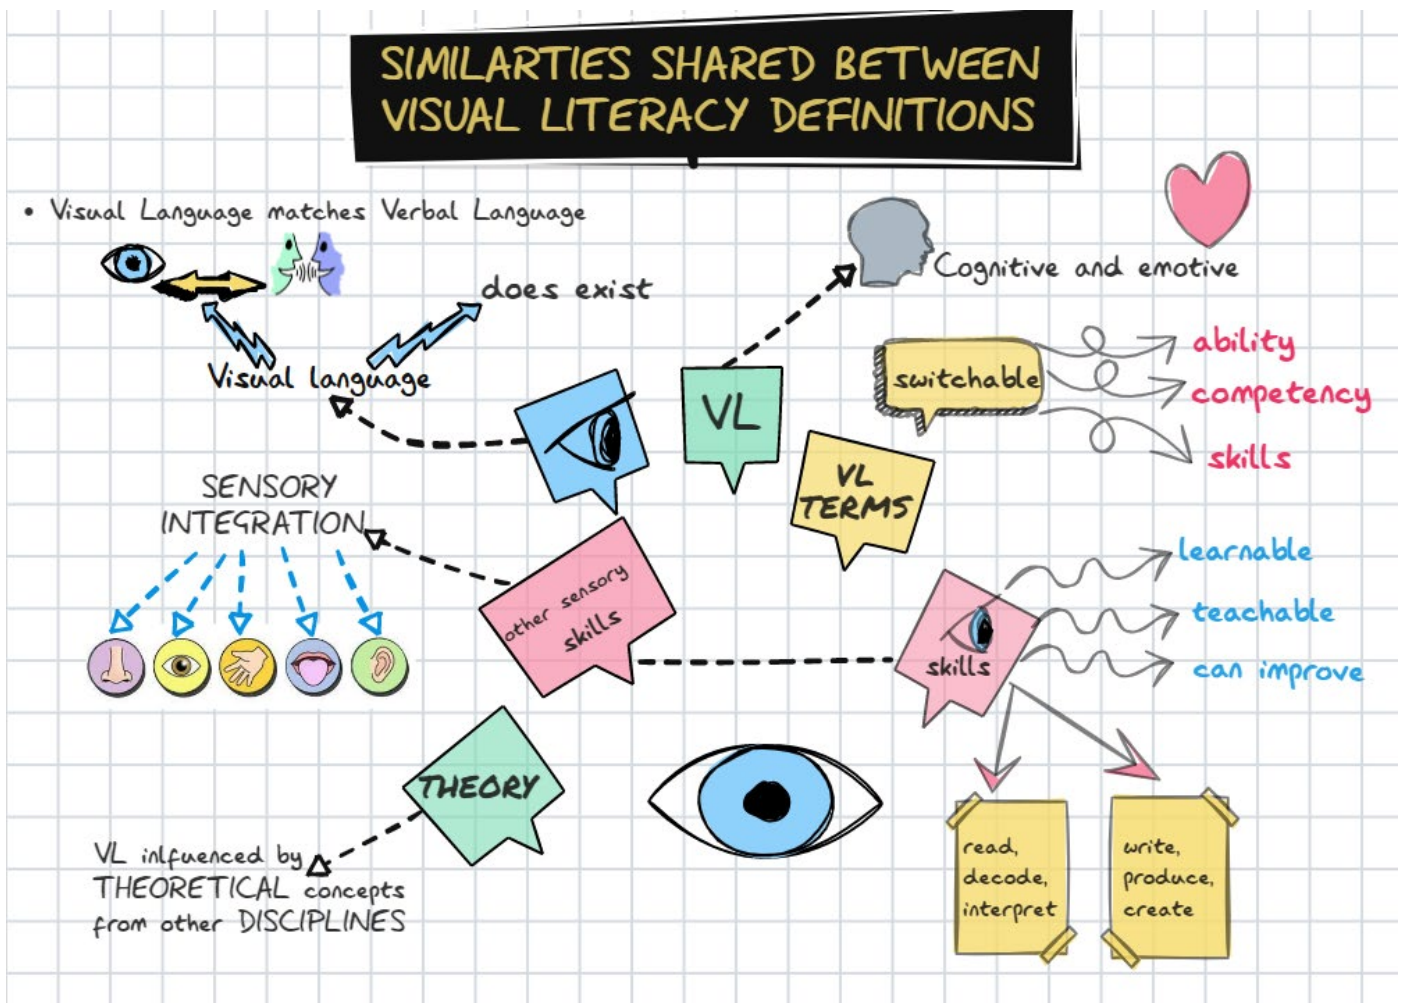 SIMILARTIES SHARED BETWEEN
VISUAL LITERACY DEFINITIONS
• Visual Language matches Verbal Language
does exist
Visual language
Cognitive and emotive
VL
switchable
ability
competency
skills
VL
TERMS
SENSORY
INTEGRATION
other sensory
skills
skills
learnable
teachable
can improve
THEORY
VL inlfuenced by
THEORETICAL concepts
from other DISCIPLINES
read,
decode,
interpret
write,
produce,
create